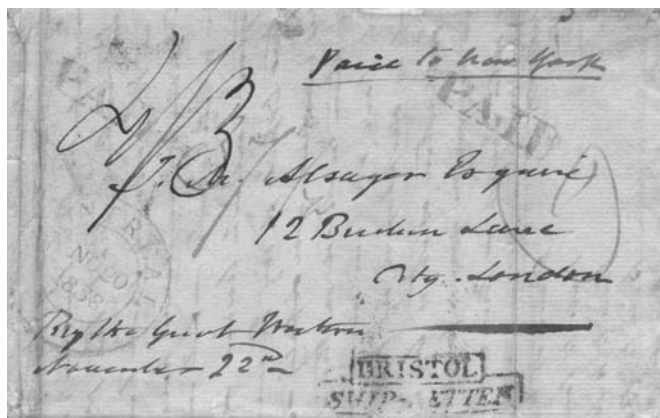 Paid to New York
PAID
PAID
T. M. Alsager Esquire
12 Lane
City London
MONTREAL
NO 20
1838
By the Great Western
November 22nd
BRISTOL
SHIP LETTER